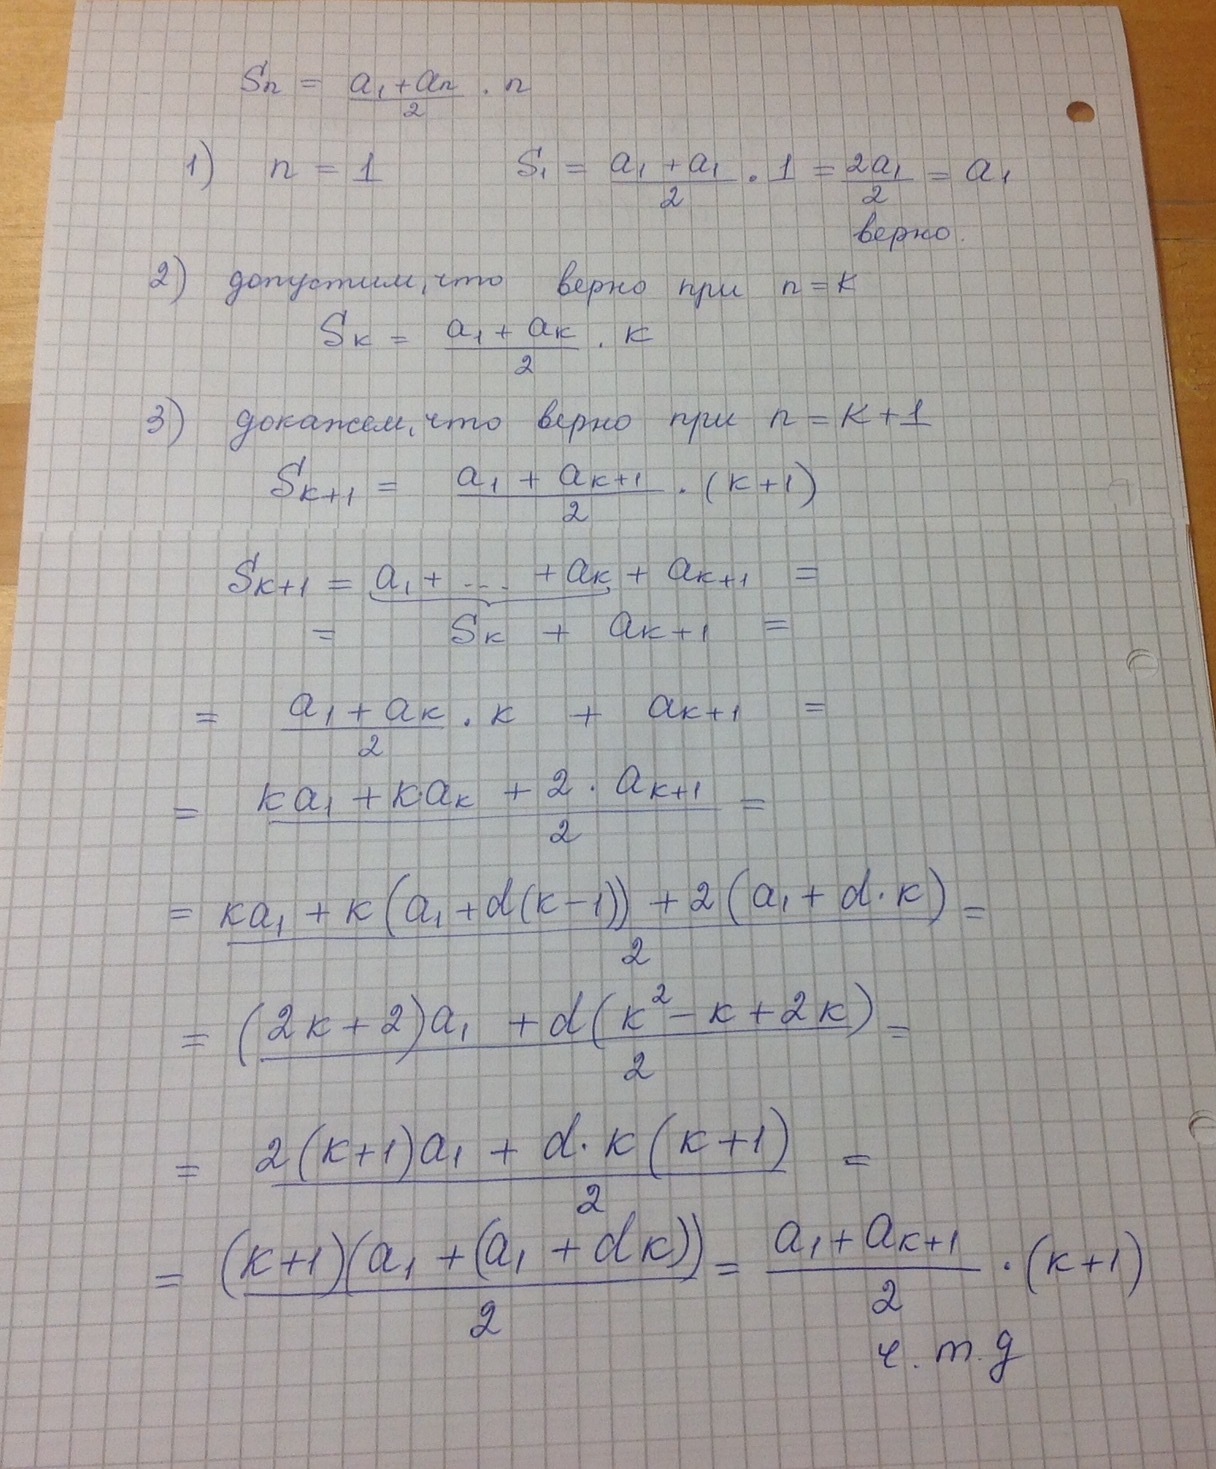 Sn = (a₁ + an)/2 · n
1) n = 1 S₁ = (a₁ + a₁)/2 · 1 = 2a₁/2 = a₁
верно.
2) допустим, что верно при n = k
Sk = (a₁ + ak)/2 · k
3) докажем, что верно при n = k + 1
Sk+1 = (a₁ + ak+1)/2 · (k+1)
Sk+1 = a₁ + .... + ak + ak+1 =
= Sk + ak+1 =
= (a₁ + ak)/2 · k + ak+1 =
= (ka₁ + kak + 2 · ak+1)/2 =
= (ka₁ + k(a₁ + d(k-1)) + 2(a₁ + d·k))/2 =
= ((2k+2)a₁ + d(k² - k + 2k))/2 =
= (2(k+1)a₁ + d·k(k+1))/2 =
= (k+1)(a₁ + (a₁ + dk))/2 = (a₁ + ak+1)/2 · (k+1)
ч.т.д